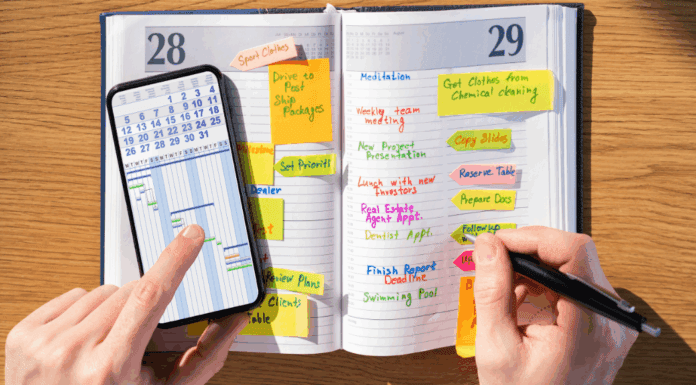 28
Sport Clothes
Drive to
Post
Ship
Packages
Set Prioriti
Dealer
Review Plans
Clients
Table
1 2 3 4
5 6 7 8 9 10 11
12 13 14 15 16 17 18
19 20 21 22 23 24 25
26 27 28 29 30 31
29
Meditation
Weekly team
meeting
New Project
Presentation
Lunch with new
Investors
Real Estate
Agent Appt.
Dentist Appt.
Finish Report
Deadline
Swimming Pool
Get Clothes from
Chemical cleaning
Copy Slides
Reserve Table
Prepare Docs
Follow up